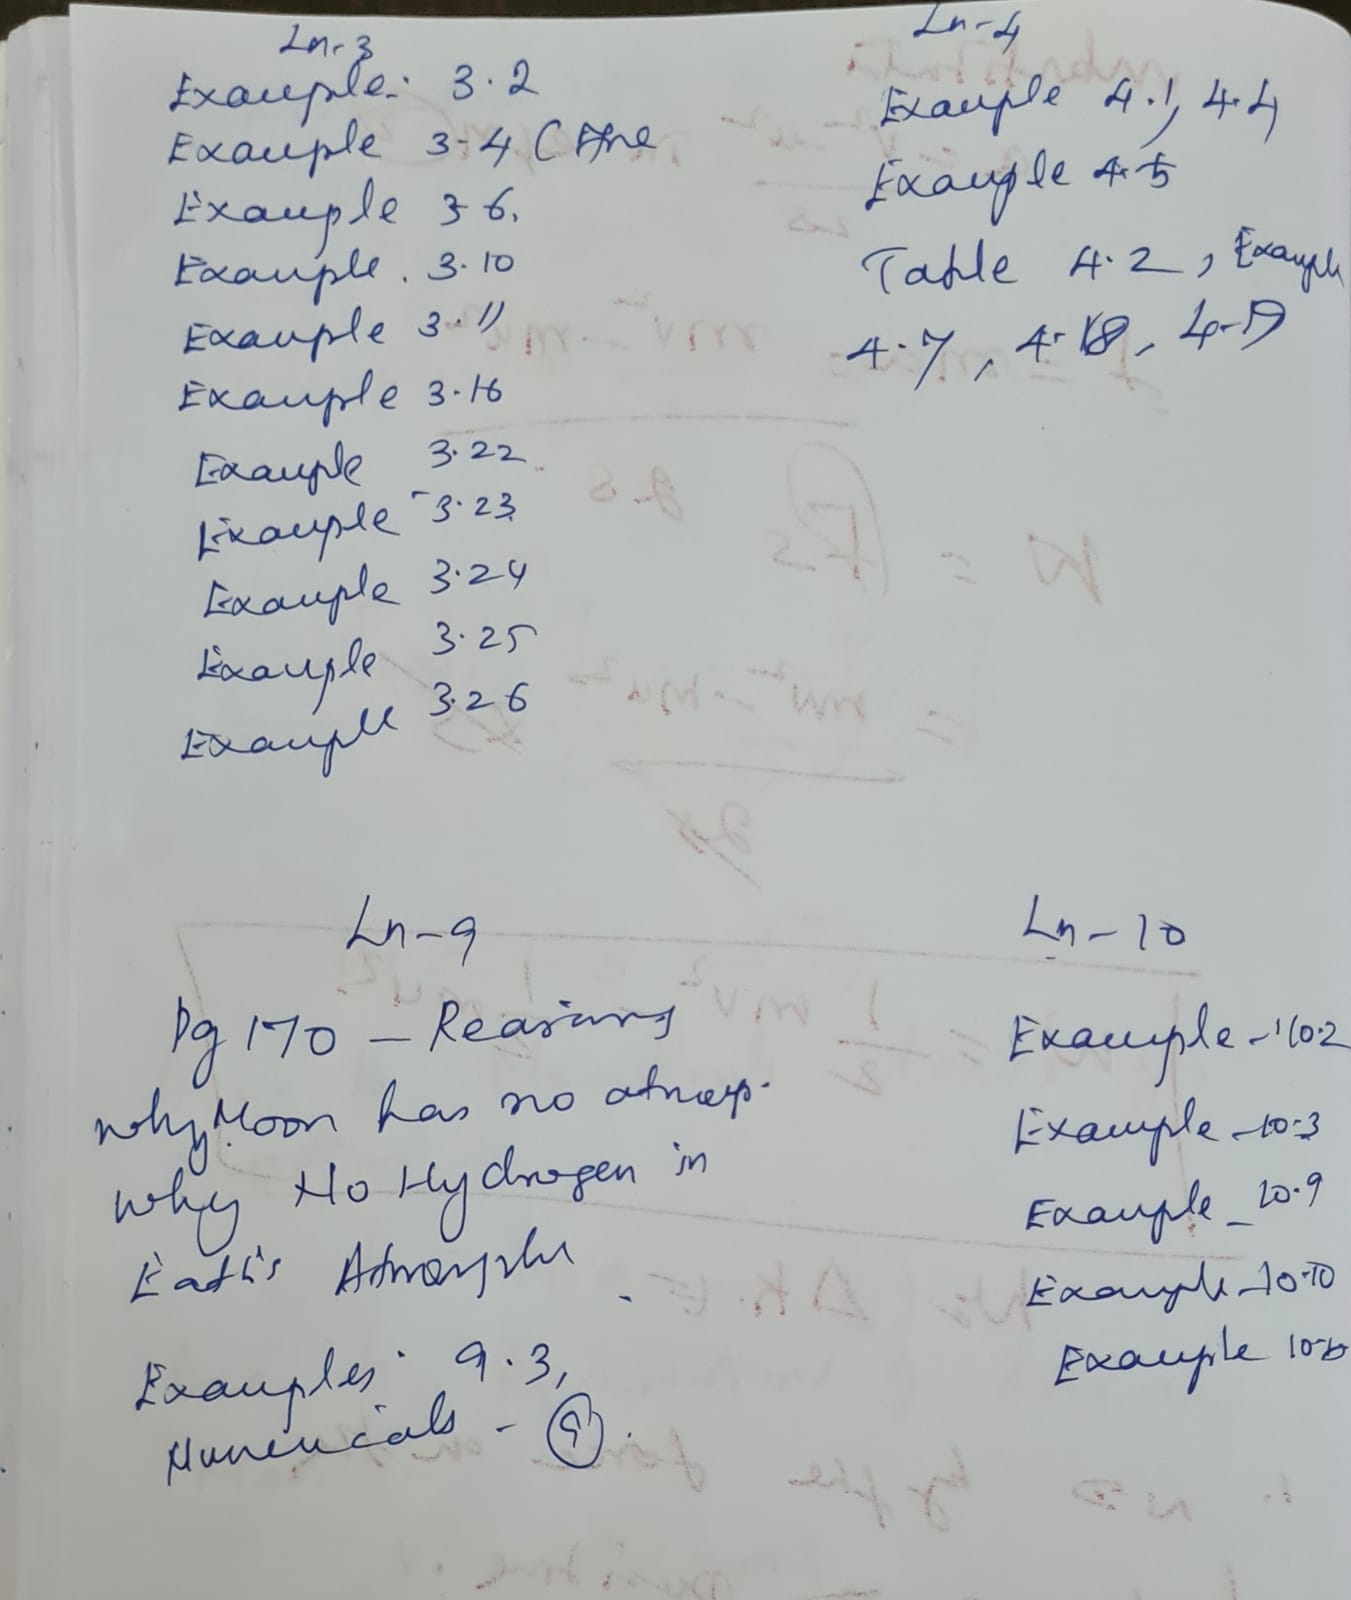 Ln-3
Example: 3.2
Example 3-4 (
Example 3 6.
Example . 3.10
Example 3.11
Example 3.16
Example 3.22
Example 3.23
Example 3.24
Example 3.25
Example 3.26
Ln-4
Example 4.1, 4.4
Example 4.5
Table 4.2, Example
4.7, 4.18, 4-19
Ln-9
Pg 170 - Reasons
why Moon has no atmosp.
why No Hydrogen in
Earth's Atmosphe
Examples: 9.3,
Numericals - 9.
Ln-10
Example - 10.2
Example - 10.3
Example - 10.9
Example - 10.10
Example